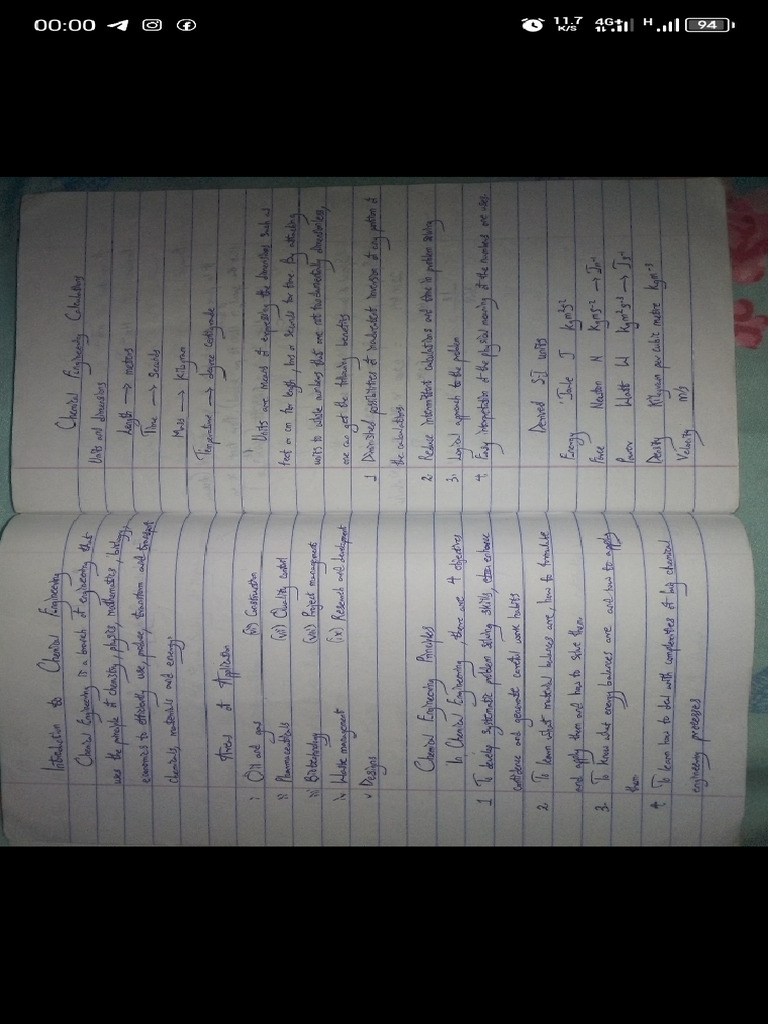 00:00
11.7 K/S 4G H 94
Introduction to Chemical Engineering
Chemical Engineering is a branch of engineering that
uses the principle of chemistry, physics, mathematics, biology,
economics to efficiently use, produce, transform and transport
chemicals, materials and energy.
Areas of Application
i Oil and gas (vi) Construction
ii Pharmaceuticals (vii) Quality control
iii Biotechnology (viii) Project management
iv Waste management (ix) Research and development
v Designs
Chemical Engineering Principles
In Chemical Engineering, there are 4 objectives
1 To develop systematic problem solving skills, enhance
confidence and generate careful work habits
2. To learn what material balances are, how to formulate
and apply them and how to solve them
3. To know what energy balances are and how to apply
them
4 To learn how to deal with complexities of big chemical
engineering processes
Chemical Engineering Calculations
Units and dimensions
Length → metres
Time → Seconds
Mass → Kilogram
Temperature → degree centigrade
Units are means of expressing the dimensions such as
feet or cm for length, hrs or seconds for time. By attaching
units to whole numbers that are not fundamentally dimensionless,
one can get the following benefits
1 Diminished possibilities of inadvertent inversion of any portion of
the calculations
2. Reduce intermittent calculations and time in problem solving
3. Logical approach to the problem
4. Easy interpretation of the physical meaning of the numbers are uses
Derived S.I units
Energy Joule J Kgm²s⁻²
Force Newton N Kgms⁻² → Jm⁻¹
Power Watt W Kgm²s⁻³ → Js⁻¹
Density Kilogram per cubic metre Kgm⁻³
Velocity m/s